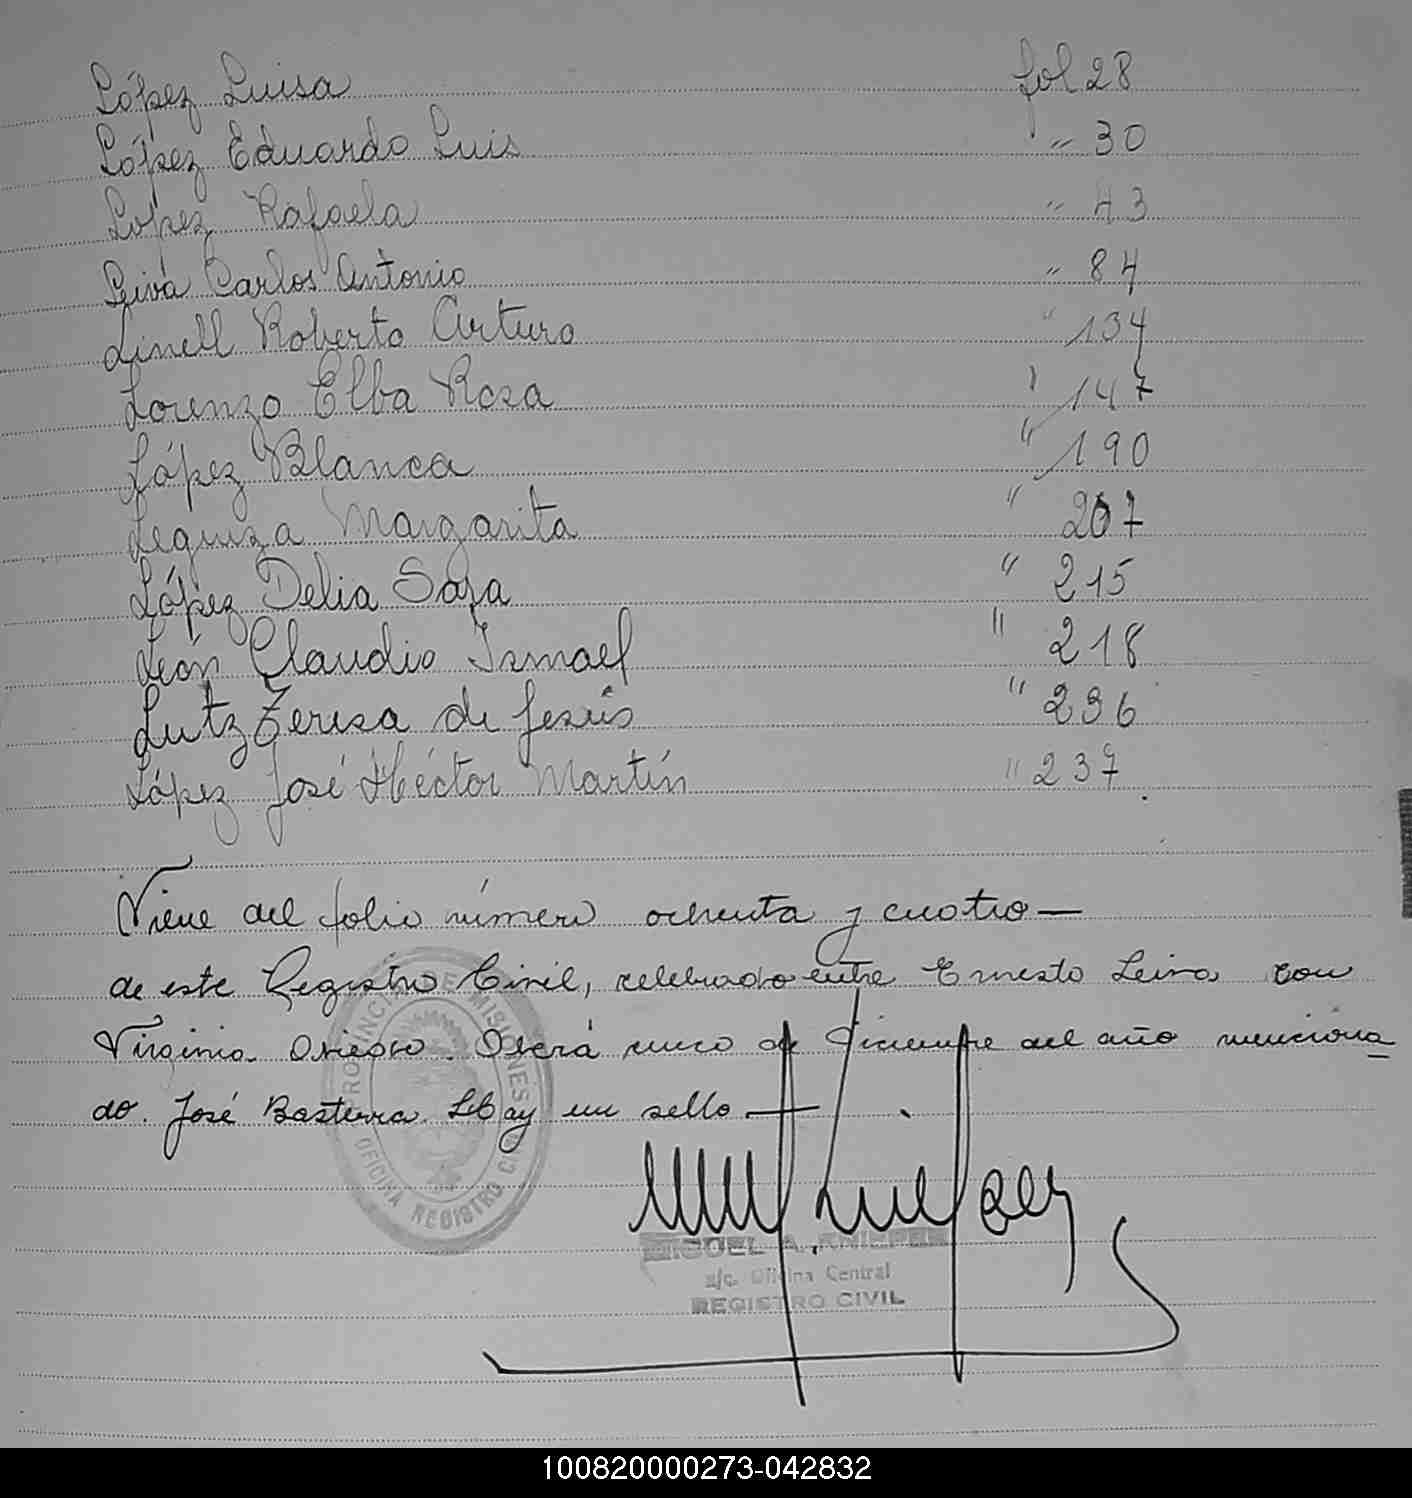 López Luisa fol 28
López Eduardo Luis " 30
Lopez Rafaela " 43
Leiva Carlos Antonio " 84
Linell Roberto Arturo " 134
Lorenzo Elba Rosa " 147
López Blanca " 190
Leguiza Margarita " 207
López Delia Sara " 215
León Claudio Ismael " 218
Lutz Teresa de Jesús " 236
López José Héctor Martín " 237
Viene del folio número ochenta y cuatro —
de este Registro Civil, celebrado entre Ernesto Leiva con
Virginia Oberá cinco de Diciembre del año menciona
do. José Basterra. Hay un sello —
PROVINCIA DE MISIONES
OFICINA REGISTRO CIVIL
MIGUEL A.
a/c. Oficina Central
REGISTRO CIVIL
100820000273-042832